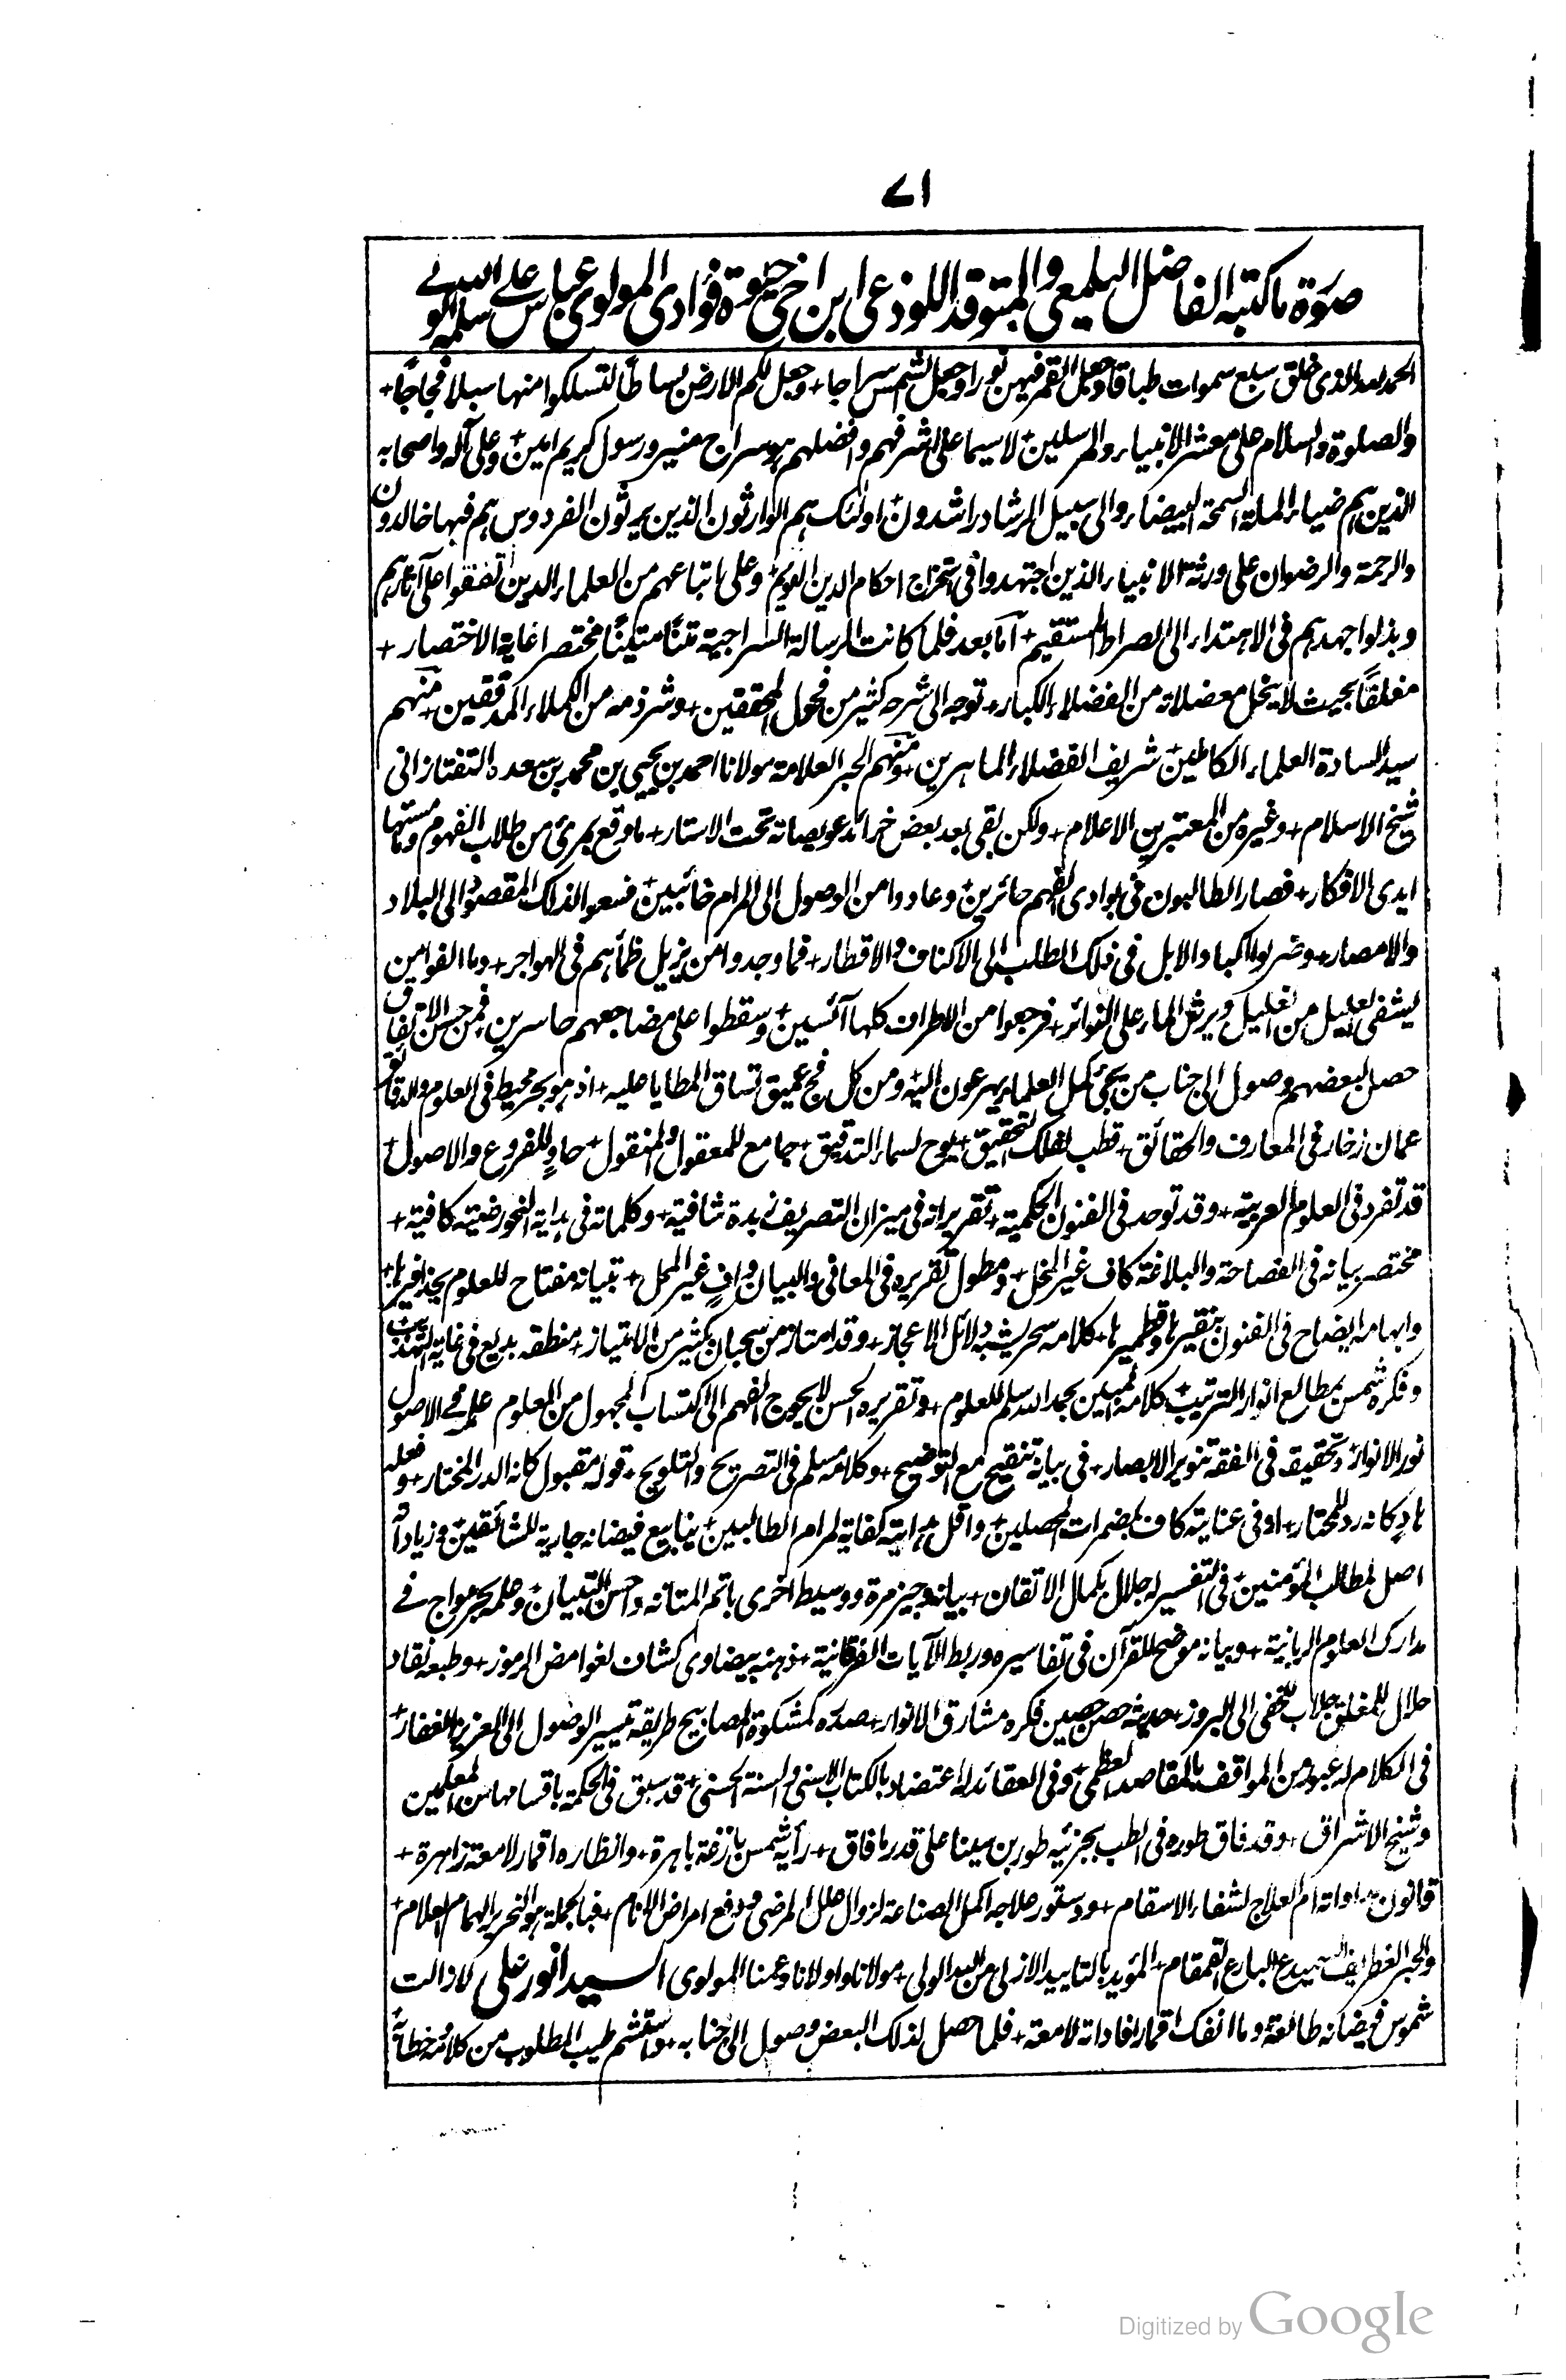 ۷۱
صورة ما كتبه الفاضل اليلمعي والمتوقد اللوذعي ابن اخي حيوة فؤادي المولوي عباس علي سلمه الله القوي
الحمد لله الذي خلق سبع سموات طباقا وجعل القمر فيهن نورا وجعل الشمس سراجا + وجعل لكم الارض بساطا لتسلكوا منها سبلا فجاجا +
والصلوة والسلام على معشر الانبياء والمرسلين + لا سيما على اشرفهم وافضلهم هو سراج منير ورسول كريم امين + وعلى آله واصحابه
الذين هم ضياء الملة السمحة البيضاء والى سبيل الرشاد راشدون + اولئك هم الوارثون الذين يرثون الفردوس هم فيها خالدون
والرحمة والرضوان على ورثة الانبياء الذين اجتهدوا في استخراج احكام الدين القويم + وعلى اتباعهم من العلماء الذين اتفقوا على آثارهم
وبذلوا جهدهم في الاهتداء الى الصراط المستقيم + اما بعد فلما كانت الرسالة السراجية متنا متينا مختصرا غاية الاختصار +
مغلقا بحيث لا ينحل معضلاته من الفضلاء الكبار + توجه الى شرحه كثير من فحول المحققين + وشرذمة من الكملاء المدققين + منهم
سيد السادة العلماء الكاملين شريف الفضلاء الماهرين + ومنهم الحبر العلامة مولانا احمد بن يحيى بن محمد بن سعد التفتازاني
شيخ الاسلام + وغيره من المعتبرين الاعلام + ولكن بقي بعد بعض خرائد عويصاته تحت الاستار + ما وقع بمرئ من طلاب الفهوم وما مستها
ايدي الافكار + فصار الطالبون في بوادي الفهم حائرين + وعادوا من الوصول الى المرام خائبين + فسعوا لذلك المقصد الى البلاد
والامصار + وضربوا اكباد الابل في ذلك الطلب الى الاكناف والاقطار + فما وجدوا من يزيل ظمأهم في الهواجر + وما الفوا من
يشفي العليل من الغليل ويرش الماء على النوائر + فرجعوا من الاطراف كلها آئسين + وسقطوا على مضاجعهم حاسرين + فمن حسن الاتفاق
حصل لبعضهم وصول الى جناب من يجئ كمل العلماء يهرعون اليه + ومن كل فج عميق تساق المطايا عليه + اذ هو بحر محيط في العلوم والدقائق
عمان زخار في المعارف والحقائق + قطب لفلك التحقيق + يوح لسماء التدقيق + جامع للمعقول والمنقول + حاو للفروع والاصول +
قد تفرد في العلوم العربية + وقد توحد في الفنون الحكمية + تقريراته في ميزان التصريف زبدة شافية + وكلماته في هداية النحو رضية كافية +
مختصر بيانه في الفصاحة والبلاغة كاف غير المخل + ومطول تقريره في المعاني والبيان واف غير الممل + تبيانه مفتاح للعلوم بحذافيرها +
وابهامه ايضاح في الفنون بنقيرها وقطميرها + كلامه سحر يشبه دلائل الاعجاز + وقد امتاز من سحبان بكثير من الامتياز + منطقه بديع في غاية التهذيب
وفكره شمس بمطالع انوار الترتيب + كلامه المبين بحمد الله سلم للعلوم + وتقريره الحسن لا يحوج الفهم الى اكتساب المجهول من المعلوم + علمه في الاصول
نور الانوار + وتحقيقه في الفقه تنوير الابصار + في بيانه تنقيح مع التوضيح + وكلامه مسلم في التصريح والتلويح + قوله مقبول كانه الدر المختار + وفعله
هاد كانه رد المحتار + اوفى عنايته كاف بمضمرات المحصلين + واقل هدايته كفاية لمرام الطالبين + ينابيع فيضانه جارية للشائقين + وزياداته
اصل لمطالب المؤمنين + في التفسير له جلال بكمال الاتقان + بيانه وجيز مرة ووسيط اخرى باتم المتانة وحسن التبيان + وعلمه بحر مواج في
مدارك العلوم الربانية + وبيانه موضح للقرآن في تفاسيره وربط الآيات الفرقانية + ذهنه بيضاوي كشاف لغوامض الرموز + وطبعه نقاد
حلال للمغلق جلاب للخفي الى البروز + حديثه حصن حصين فكره مشارق الانوار + صدره كمشكوة المصابيح طريقه تيسير الوصول الى العزيز الغفار +
في الكلام له عبور من المواقف بالمقاصد العظمى + وفي العقائد له اعتضاد بالكتاب الاسنى والسنة الحسنى + قد سبق في الحكمة باقسامها من المعلمين
وشيخ الاشراق + وقد فاق طوره في الطب بجزئيه طور بن سينا على قدر ما فاق + رأيه شمس بازغة باهرة + وانظاره اقمار لامعة زاهرة +
قانون مداواته ام العلاج لشفاء الاسقام + ودستور علاجه اكمل الصناعة لزوال علل المرضى ودفع امراض الانام + فبالجملة هو النحرير الهمام العلام +
والحبر الغطريف السميدع البارع القمقام + المؤيد بالتاييد الازلي من الله الولي + مولانا واولانا وعمنا المولوي السيد انور علي لا زالت
شموس فيضانه طالعة وما انفك اقمار افاداته لامعة + فلما حصل لذلك البعض وصول الى جنابه + واستشم طيب المطلوب من كلامه وخطابه
Digitized by Google